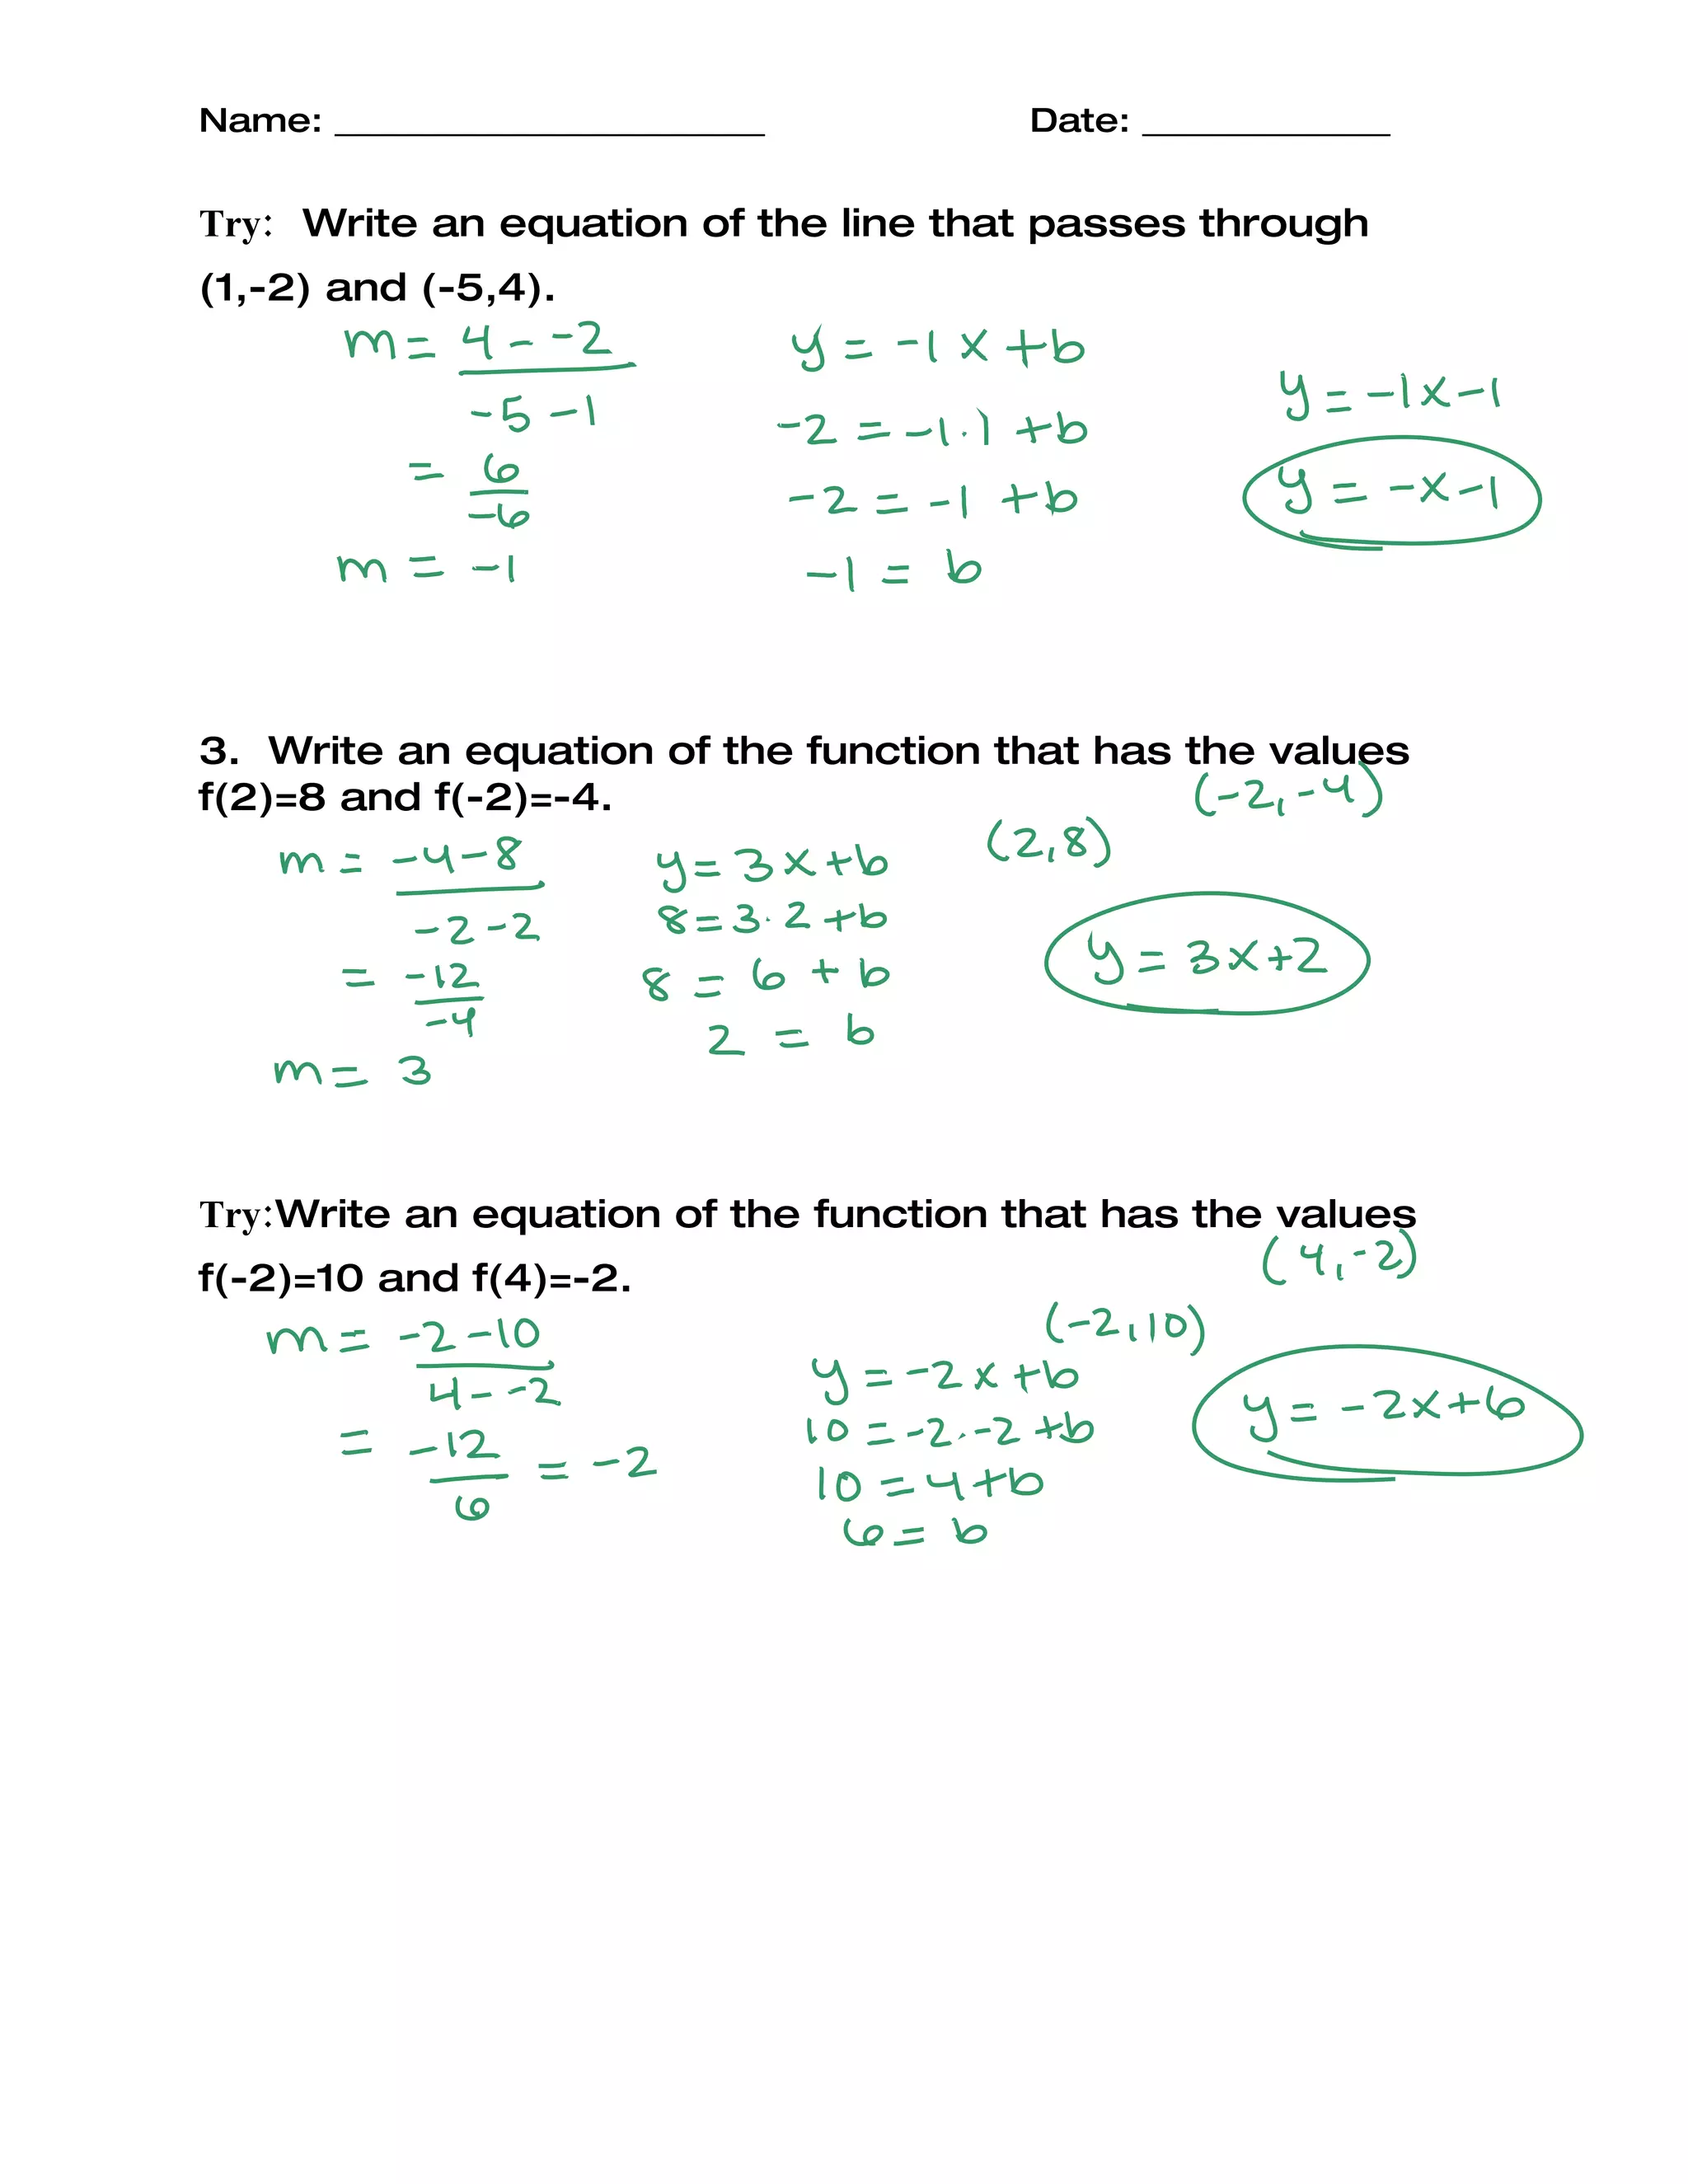 Name: ____________________ Date: ____________
Try: Write an equation of the line that passes through
(1,-2) and (-5,4).
m = 4 - -2
-5 - 1
= 6
-6
m = -1
y = -1x + b
-2 = -1·1 + b
-2 = -1 + b
-1 = b
y = -1x - 1
y = -x - 1
3. Write an equation of the function that has the values
f(2)=8 and f(-2)=-4.
(2,8)
(-2,-4)
m = -4 - 8
-2 - 2
= -12
-4
m = 3
y = 3x + b
8 = 3·2 + b
8 = 6 + b
2 = b
y = 3x + 2
Try:Write an equation of the function that has the values
f(-2)=10 and f(4)=-2.
(-2,10)
(4,-2)
m = -2 - 10
4 - -2
= -12 = -2
6
y = -2x + b
10 = -2·-2 + b
10 = 4 + b
6 = b
y = -2x + 6